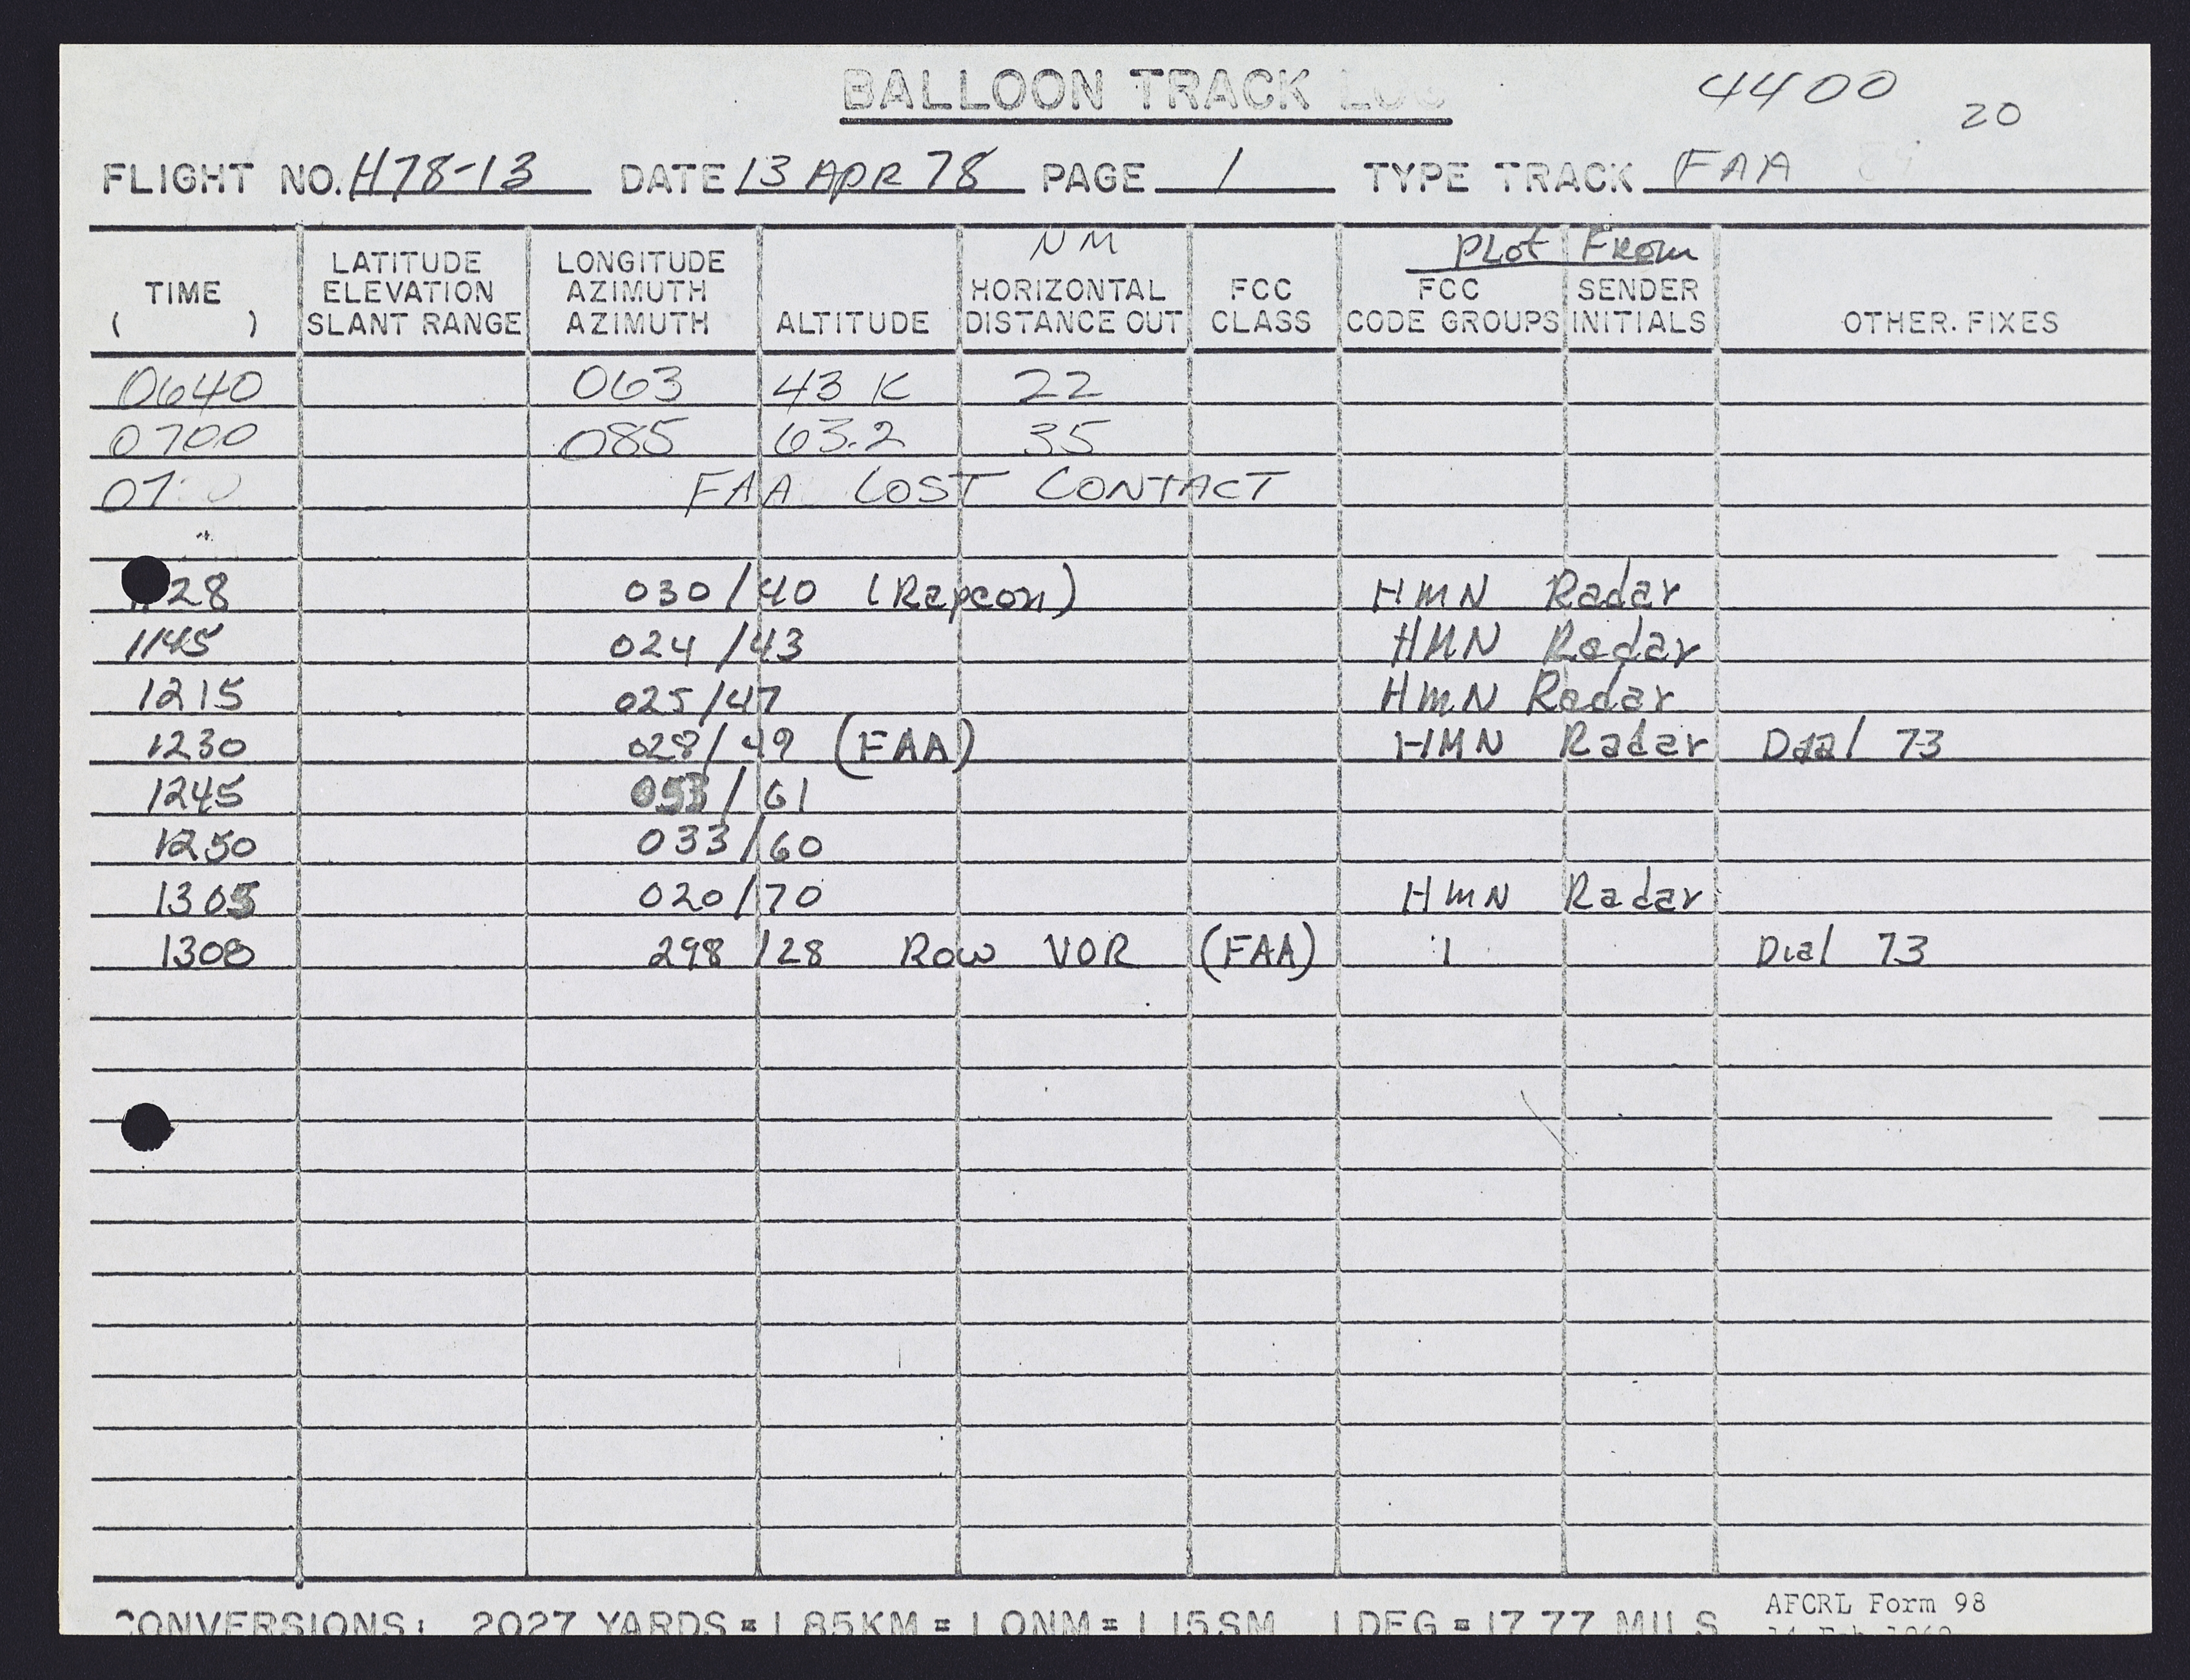 BALLOON TRACK LOG
4400
20
FLIGHT NO. H78-13 DATE 13 APR 78 PAGE 1 TYPE TRACK FAA
NM
Plot From
TIME ( ) LATITUDE ELEVATION SLANT RANGE LONGITUDE AZIMUTH AZIMUTH ALTITUDE HORIZONTAL DISTANCE OUT FCC CLASS FCC CODE GROUPS SENDER INITIALS OTHER. FIXES
0640 063 43 K 22
0700 085 63.2 35
07 FAA LOST CONTACT
28 030/40 (Rapcon) HMN Radar
1145 024/43 HMN Radar
1215 025/47 HMN Radar
1230 028/49 (FAA) HMN Radar Dial 73
1245 053/61
1250 033/60
1305 020/70 HMN Radar
1308 298/28 Row VOR (FAA) Dial 73
CONVERSIONS: 2027 YARDS = 1.85KM = 1.0NM = 1.15SM 1 DEG = 17.77 MILS
AFCRL Form 98